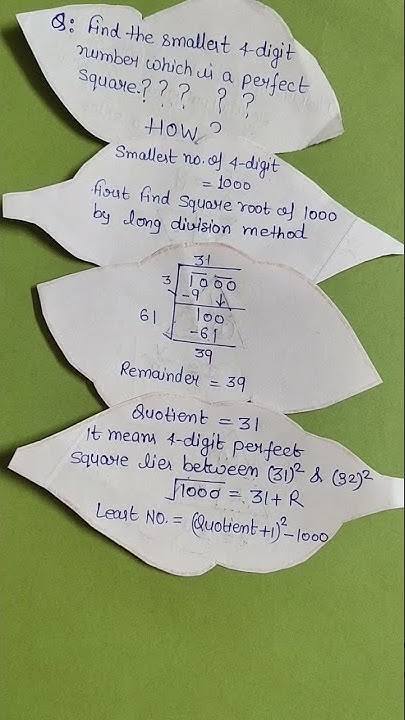 Q: Find the smallest 4-digit
number which is a perfect
square.? ? ? ? ?
HOW ?
Smallest no. of 4-digit
= 1000
first find square root of 1000
by long division method
31
3 1000
-9
61 100
-61
39
Remainder = 39
Quotient = 31
It means 4-digit perfect
square lies between (31)² & (32)²
√1000 = 31 + R
Least NO. = (Quotient+1)² - 1000